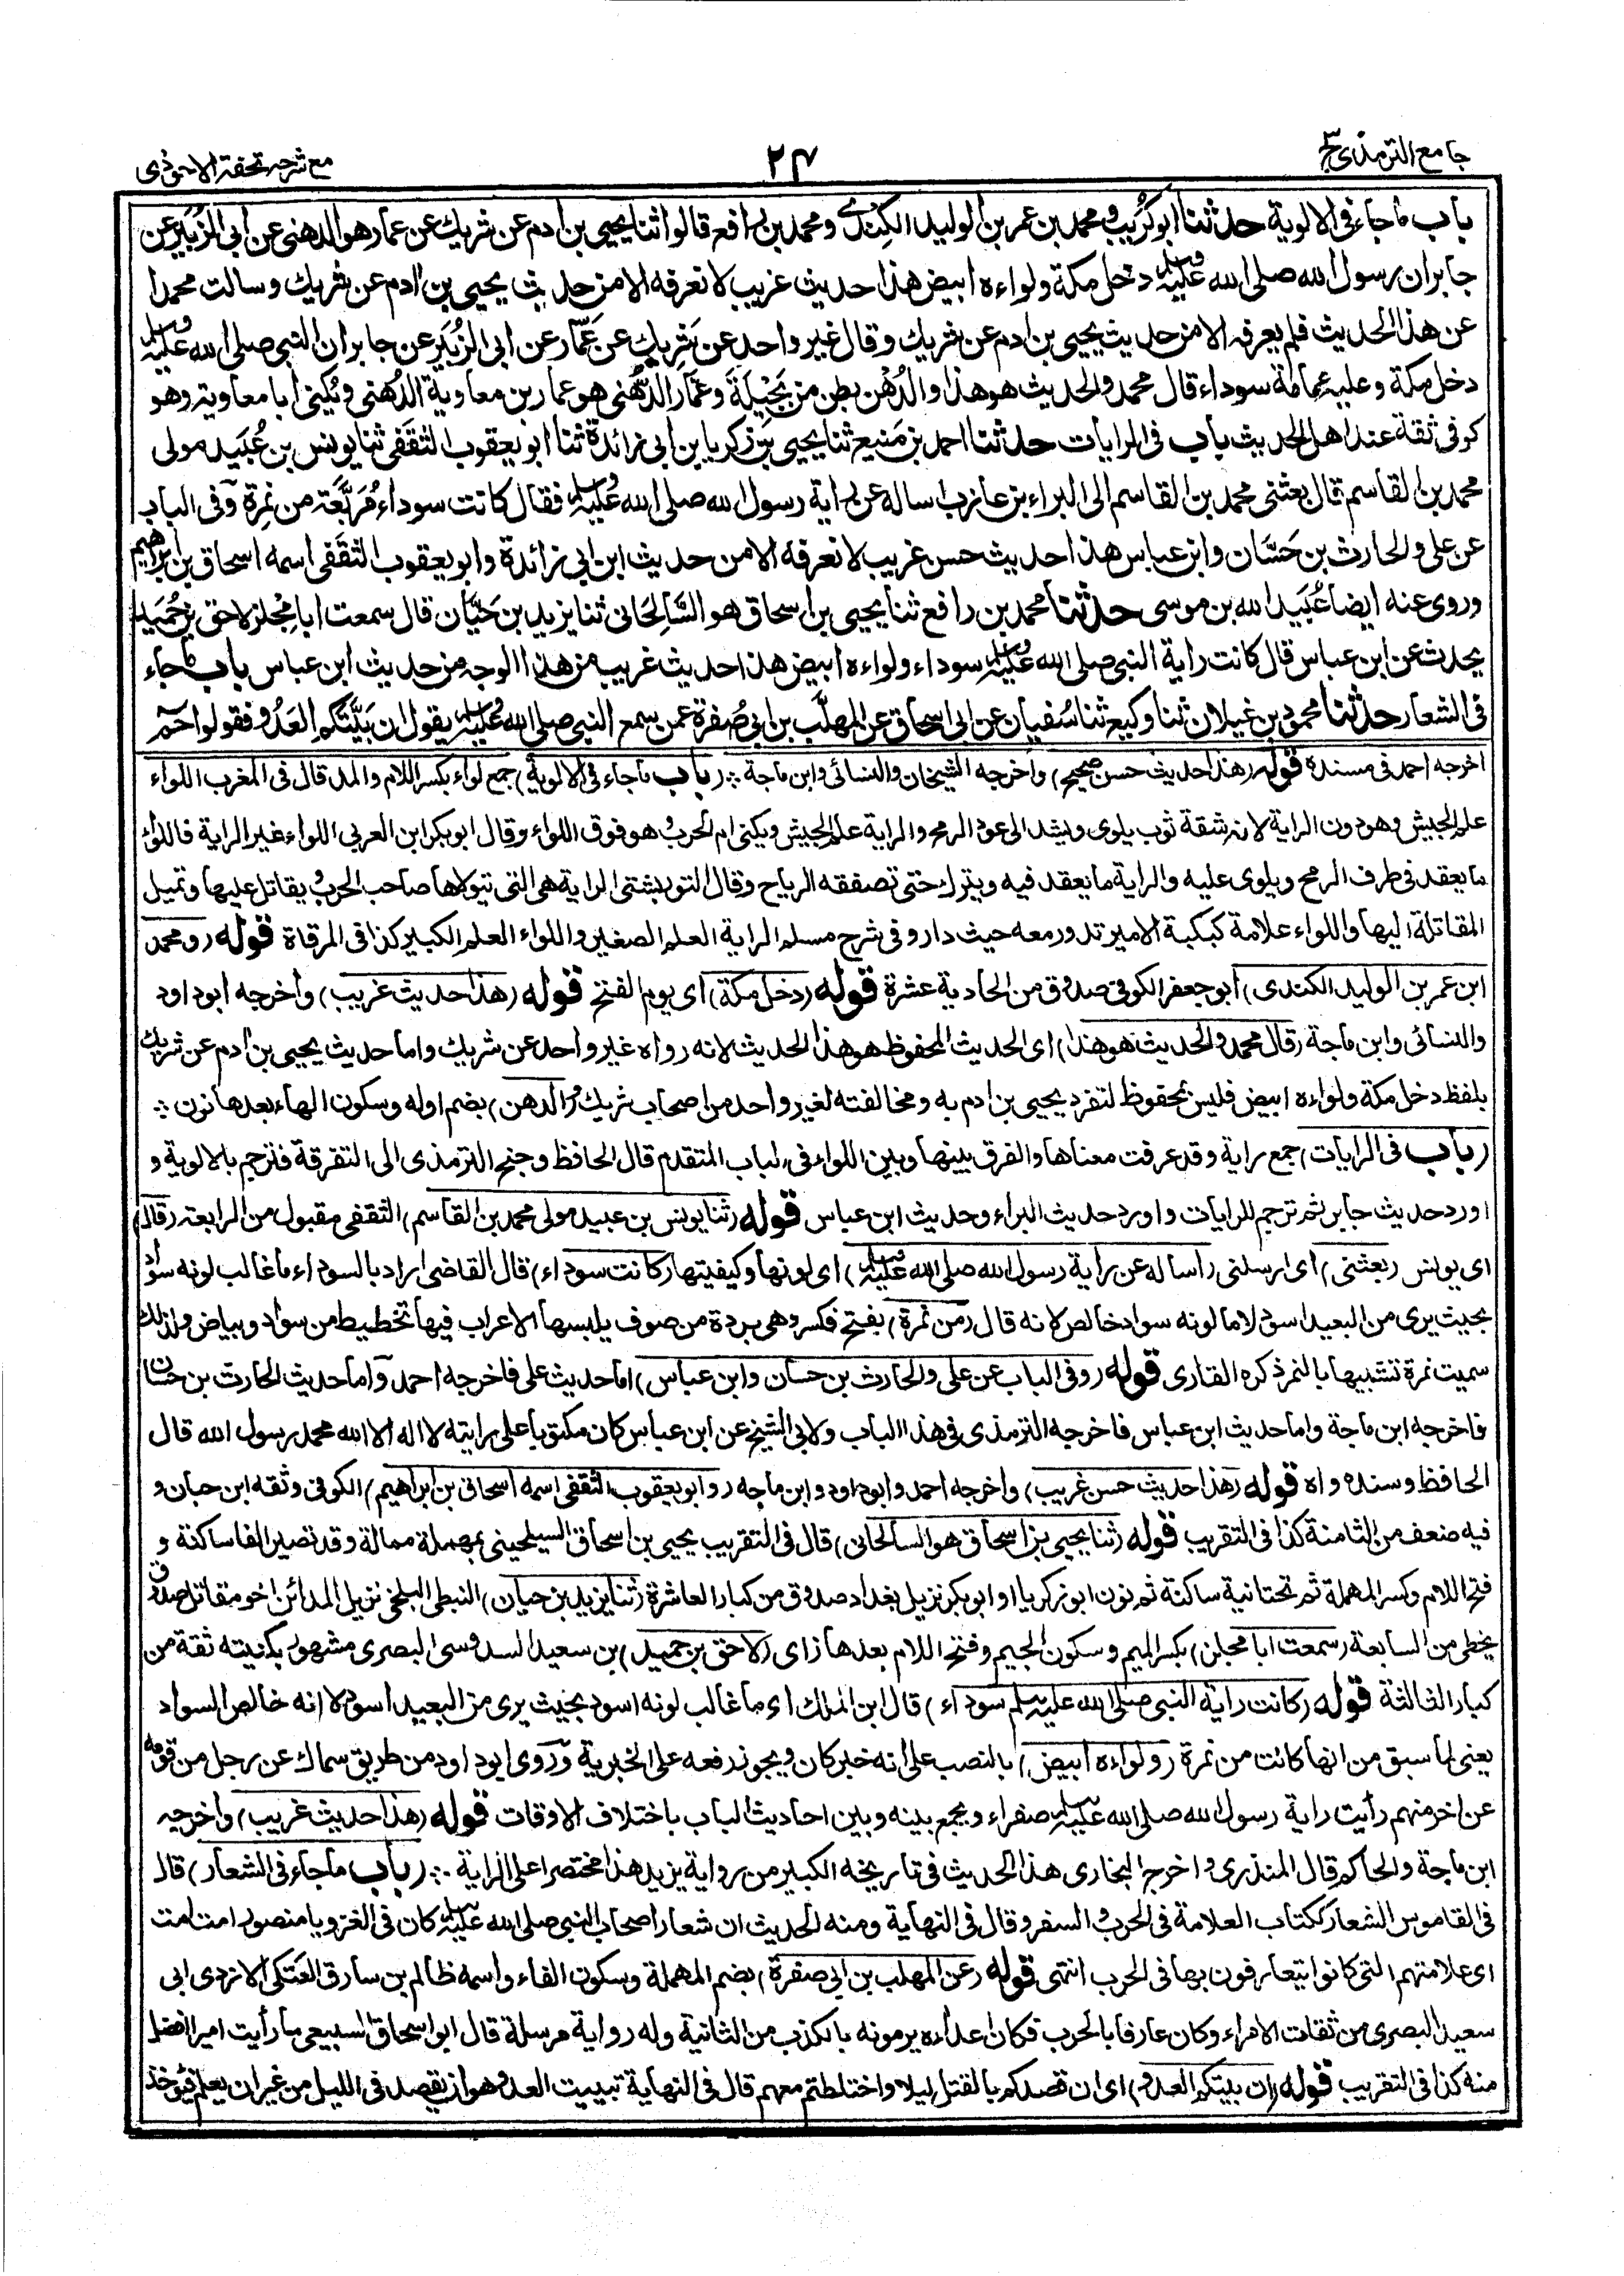 جامع الترمذى ج٣
٢٤
مع شرحه تحفة الاحوذى
باب ما جاء فى الالوية حدثنا ابو كُرَيب و محمد بن عمر بن الوليد الكِنْدى و محمد بن رافع قالوا ثنا يحيى بن ادم عن شريك عن عمار هو الدهنى عن ابى الزُبَير عن
جابر ان رسول الله صلى الله عليه وسلم دخل مكة ولواءه ابيض هذا حديث غريب لا نعرفه الا من حديث يحيى بن ادم عن شريك وسالت محمدا
عن هذا الحديث فلم يعرفه الا من حديث يحيى بن ادم عن شريك وقال غير واحد عن شَرِيك عن عَمّار عن ابى الزُبَير عن جابر ان النبى صلى الله عليه وسلم
دخل مكة وعليه عِمامة سوداء قال محمد والحديث هو هذا والدُهْن بطن من بَجِيْلَةَ وعمّار الدُّهْنى هو عمار بن معاوية الدُهنى ويُكنى ابا معاوية وهو
كوفى ثقة عند اهل الحديث باب فى الرايات حدثنا احمد بن مَنيع ثنا يحيى بن زكريا بن ابى زائدة ثنا ابو يعقوب الثقَفى ثنا يونس بن عُبَيد مولى
محمد بن القاسم قال بعثنى محمد بن القاسم الى البراء بن عازب اساله عن راية رسول الله صلى الله عليه وسلم فقال كانت سوداء مُرَبَّعَة من نَمِرة وفى الباب
عن على والحارث بن حَسّان وابن عباس هذا حديث حسن غريب لا نعرفه الا من حديث ابن ابى زائدة وابو يعقوب الثقَفى اسمه اسحاق بن ابراهيم
وروى عنه ايضا عُبَيد الله بن موسى حدثنا محمد بن رافع ثنا يحيى بن اسحاق هو السَّالِحَانى ثنا يزيد بن حَيّان قال سمعت ابا مِجْلز لاحق بن حُمَيد
يحدث عن ابن عباس قال كانت راية النبى صلى الله عليه وسلم سوداء ولواءه ابيض هذا حديث غريب من هذا الوجه من حديث ابن عباس باب ما جاء
فى الشعار حدثنا محمود بن غيلان ثنا وكيع ثنا سُفيان عن ابى اسحاق عن المهلَّب بن ابى صُفرة عمن سمع النبى صلى الله عليه وسلم يقول ان بَيَّتَكم العَدُو فقولوا حٰمٓ
اخرجه احمد فى مسنده قوله (هذا حديث حسن صحيح) واخرجه الشيخان والنسائى وابن ماجة ∴ (باب ما جاء فى الالوية) جمع لواء بكسر اللام والمد قال فى المغرب اللواء
علم الجيش وهو دون الراية لانه شقة ثوب يلوى ويشد الى عود الرمح والراية علم الجيش ويكنى ام الحرب وهو فوق اللواء وقال ابو بكر ابن العربى اللواء غير الراية فاللواء
ما يعقد فى طرف الرمح ويلوى عليه والراية ما يعقد فيه ويترك حتى تصفقه الرياح وقال التوربشتى الراية هى التى يتولاها صاحب الحرب يقاتل عليها وتميل
المقاتلة اليها واللواء علامة كبكبة الامير تدور معه حيث دار وفى شرح مسلم الراية العلم الصغير واللواء العلم الكبير كذا فى المرقاة قوله (ومحمد
ابن عمر بن الوليد الكندى) ابو جعفر الكوفى صدوق من الحادية عشرة قوله (دخل مكة) اى يوم الفتح قوله (هذا حديث غريب) واخرجه ابو داود
والنسائى وابن ماجة (قال محمد والحديث هو هذا) اى الحديث المحفوظ هو هذا الحديث لانه رواه غير واحد عن شريك واما حديث يحيى بن ادم عن شريك
بلفظ دخل مكة ولواءه ابيض فليس بمحفوظ لتفرد يحيى بن ادم به ومخالفته لغير واحد من اصحاب شريك (والدهن) بضم اوله وسكون الهاء بعدها نون ∴
(باب فى الرايات) جمع راية وقد عرفت معناها والفرق بينها وبين اللواء فى الباب المتقدم قال الحافظ وجنح الترمذى الى التفرقة فترجم بالالوية و
اورد حديث جابر ثم ترجم للرايات واورد حديث البراء وحديث ابن عباس قوله (ثنا يونس بن عبيد مولى محمد بن القاسم) الثقفى مقبول من الرابعة (قال)
اى يونس (بعثنى) اى ارسلنى (اساله عن راية رسول الله صلى الله عليه وسلم) اى لونها وكيفيتها (كانت سوداء) قال القاضى اراد بالسوداء ما غالب لونه سواد
بحيث يرى من البعيد اسود لا ما لونه سواد خالص لانه قال (من نمرة) بفتح فكسر وهى بردة من صوف يلبسها الاعراب فيها تخطيط من سواد وبياض ولذلك
سميت نمرة تشبيها بالنمر ذكره القارى قوله (وفى الباب عن على والحارث بن حسان وابن عباس) اما حديث على فاخرجه احمد واما حديث الحارث بن حسان
فاخرجه ابن ماجة واما حديث ابن عباس فاخرجه الترمذى فى هذا الباب ولابى الشيخ عن ابن عباس كان مكتوبا على رايته لا اله الا الله محمد رسول الله قال
الحافظ وسنده واه قوله (هذا حديث حسن غريب) واخرجه احمد وابو داود وابن ماجه (وابو يعقوب الثقفى اسمه اسحاق بن ابراهيم) الكوفى وثقه ابن حبان و
فيه ضعف من الثامنة كذا فى التقريب قوله (ثنا يحيى بن اسحاق هو السالحانى) قال فى التقريب يحيى بن اسحاق السيلحينى بمهملة ممالة وقد تصير الفا ساكنة و
فتح اللام وكسر المهملة ثم تحتانية ساكنة ثم نون ابو زكريا او ابو بكر نزيل بغداد صدوق من كبار العاشرة (ثنا يزيد بن حيان) النبطى البلخى نزيل المدائن اخو مقاتل صدوق
يخطى من السابعة (سمعت ابا مجلز) بكسر الميم وسكون الجيم وفتح اللام بعدها زاى (لاحق بن حميد) بن سعيد السدوسى البصرى مشهور بكنيته ثقة من
كبار الثالثة قوله (كانت راية النبى صلى الله عليه وسلم سوداء) قال ابن الملك اى ما غالب لونه اسود بحيث يرى من البعيد اسود لا انه خالص السواد
يعنى لما سبق من انها كانت من نمرة (ولواءه ابيض) بالنصب على انه خبر كان ويجوز رفعه على الخبرية وروى ابو داود من طريق سماك عن رجل من قومه
عن اخر منهم رأيت راية رسول الله صلى الله عليه وسلم صفراء ويجمع بينه وبين احاديث الباب باختلاف الاوقات قوله (هذا حديث غريب) واخرجه
ابن ماجة والحاكم قال المنذرى واخرج البخارى هذا الحديث فى تاريخه الكبير من رواية يزيد هذا مختصرا على الراية ∴ (باب ما جاء فى الشعار) قال
فى القاموس الشعار ككتاب العلامة فى الحرب والسفر وقال فى النهاية ومنه الحديث ان شعار اصحاب النبى صلى الله عليه وسلم كان فى الغزو يا منصور امت امت
اى علامتهم التى كانوا يتعارفون بها فى الحرب انتهى قوله (عن المهلب بن ابى صفرة) بضم المهملة وسكون الفاء واسمه ظالم بن سارق العَتَكى الازدى ابى
سعيد البصرى من ثقات الامراء وكان عارفا بالحرب فكان اعداءه يرمونه بالكذب من الثانية وله رواية مرسلة قال ابو اسحاق السبيعى ما رأيت اميرا افضل
منه كذا فى التقريب قوله (ان بيتكم العدو) اى ان قصدكم بالقتل ليلا واختلطتم معهم قال فى النهاية تبييت العدو هو ان يقصد فى الليل من غير ان يعلم فيؤخذ